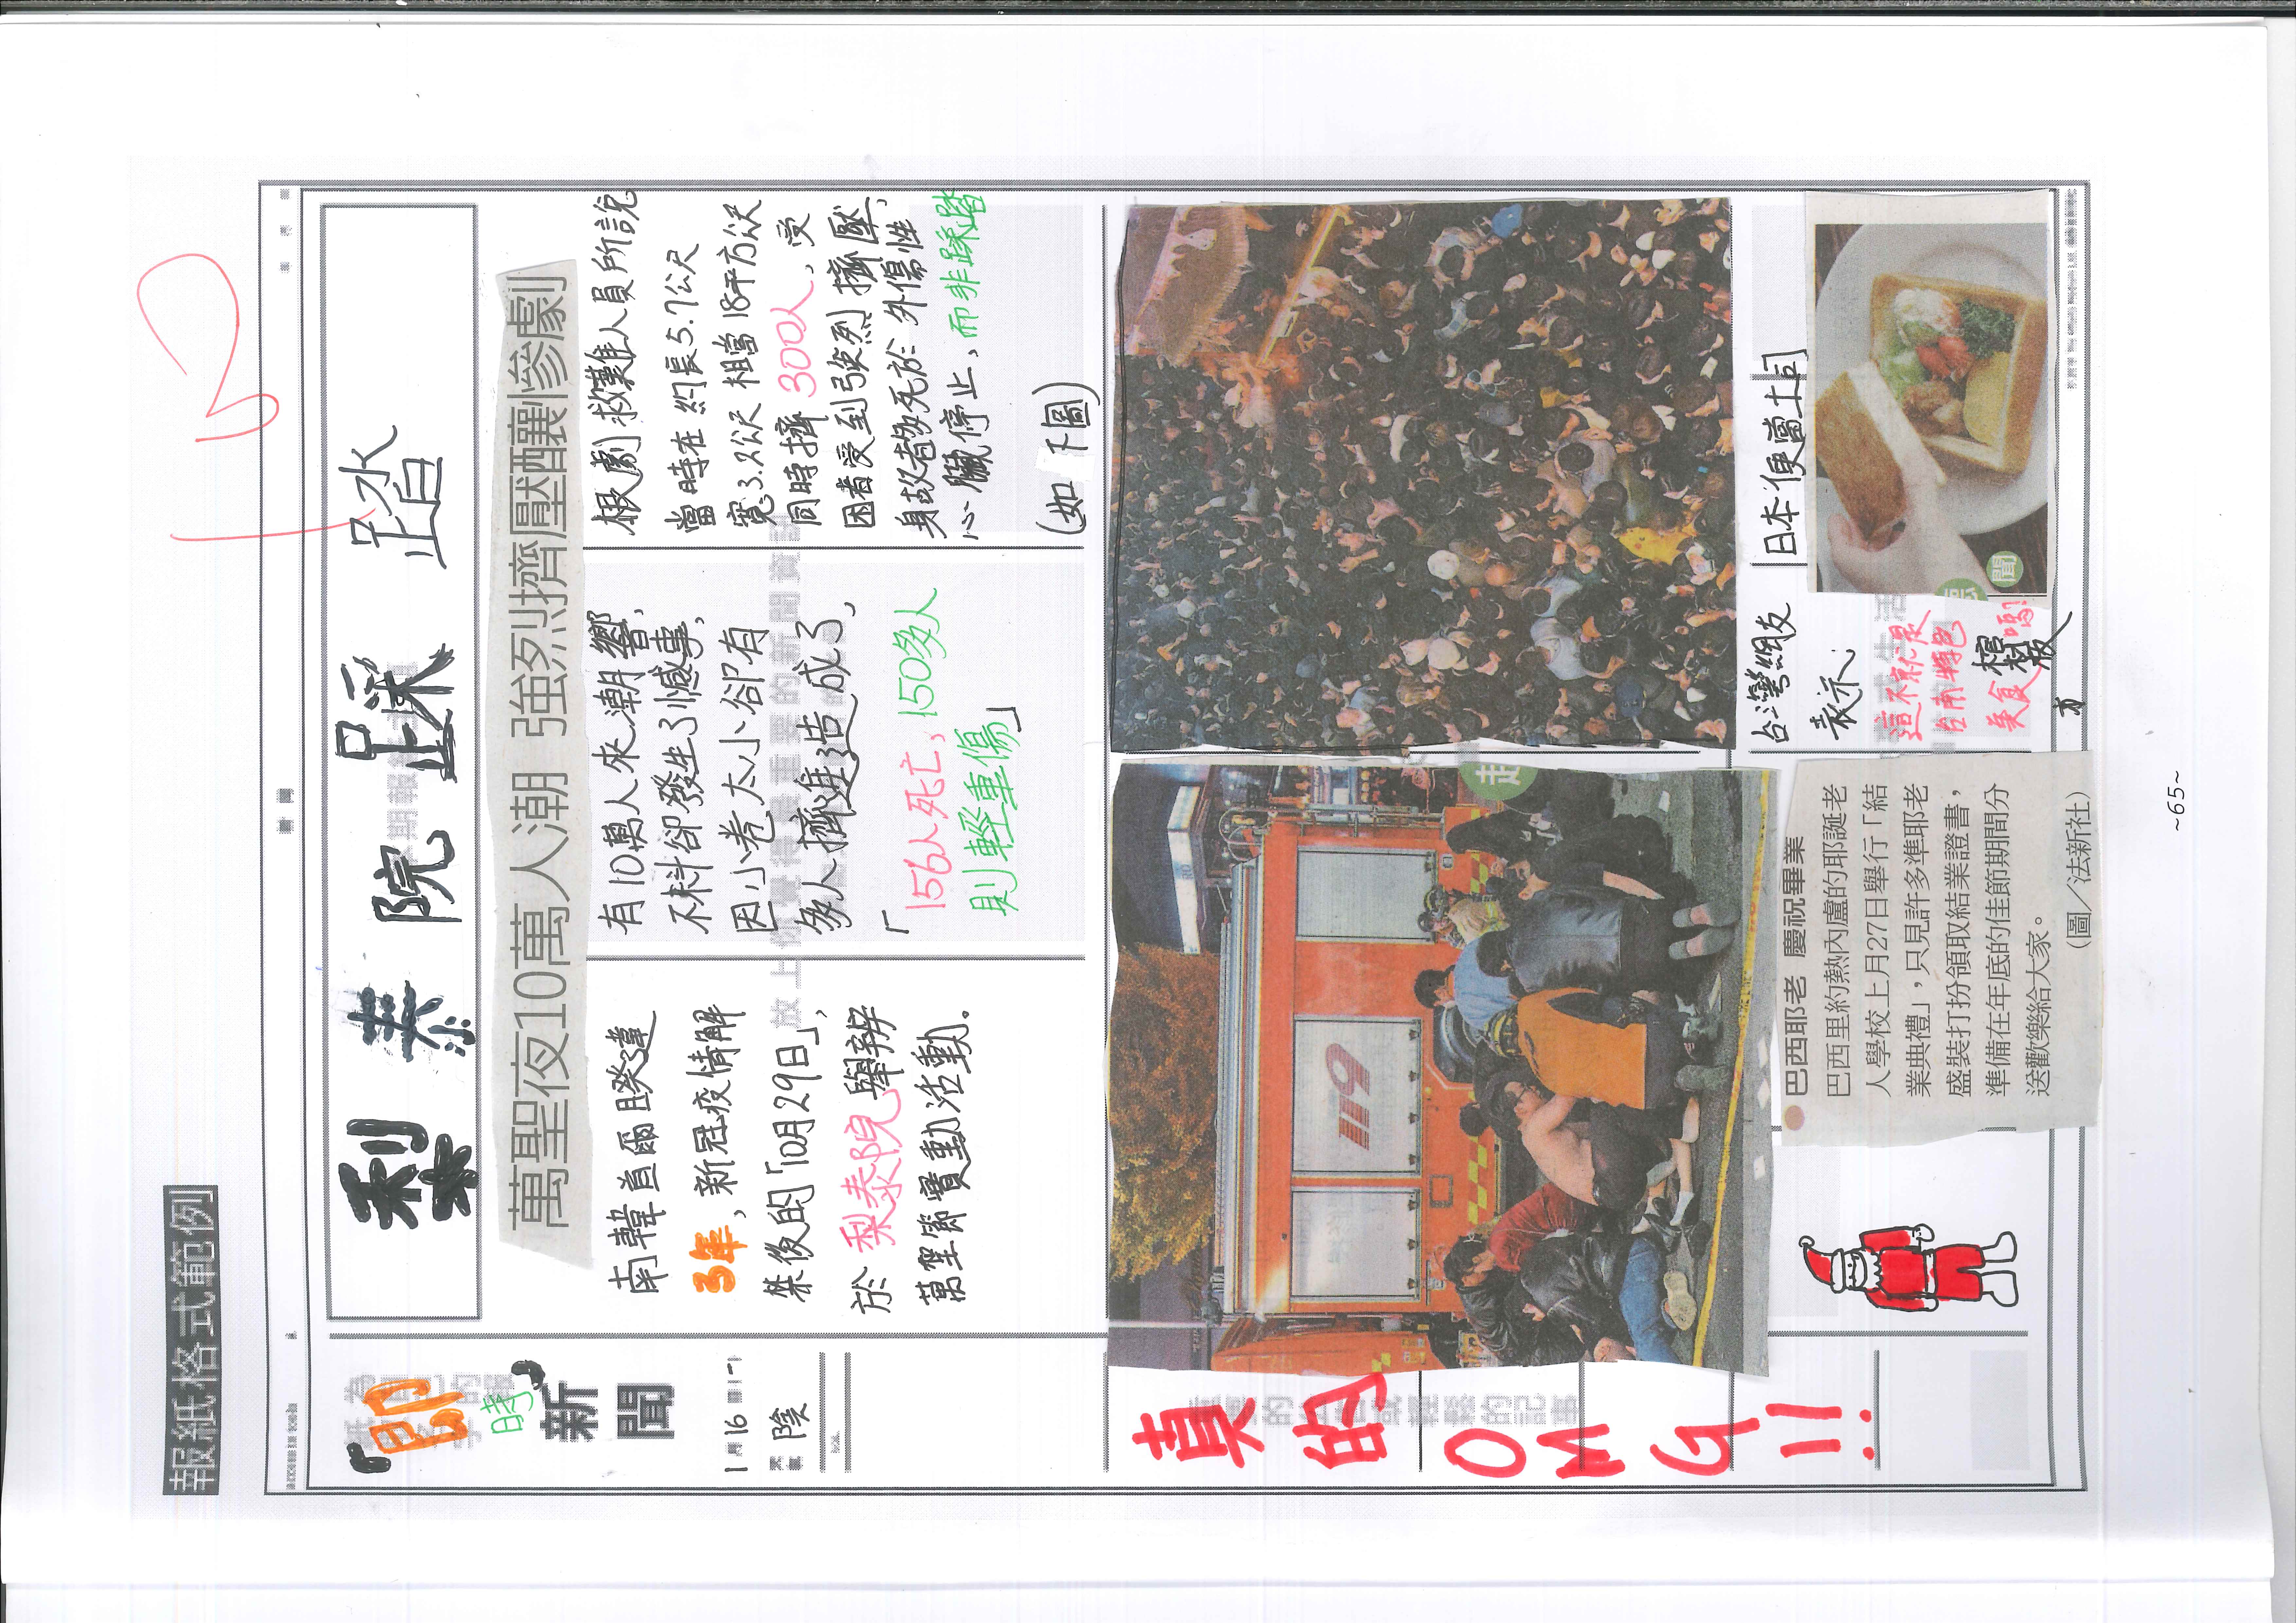 報紙格式範例
梨泰院 踩踏
「即時」
新聞
1月16日
陰
萬聖夜10萬人潮 強烈擠壓釀慘劇
南韓首爾睽違
3年,新冠疫情解
禁後的「10月29日」,
於梨泰院舉辦
萬聖節賣動活動。
有10萬人來潮響,
不料卻發生了憾事,
因小巷太小卻有
多人擠進造成了,
「156人死亡,150多人
則輕重傷」
根劇救難人員所說
當時在約長5.7公尺
寬3.2公尺相當18平方公尺
同時擠300人,受
困者受到強烈擠壓,
身故者多死於外傷性
心臟停止,而非踩踏
(如下圖)
真的
OMG!!
119
巴西耶老 慶祝畢業
巴西里約熱內盧的耶誕老
人學校上月27日舉行「結
業典禮」,只見許多準耶老
盛裝打扮領取結業證書,
準備在年底的佳節期間分
送歡樂給大家。
(圖/法新社)
台灣網友
表示:
這不就是
台南特色
美食棺材板嗎?
日本便當土司
聞
~65~